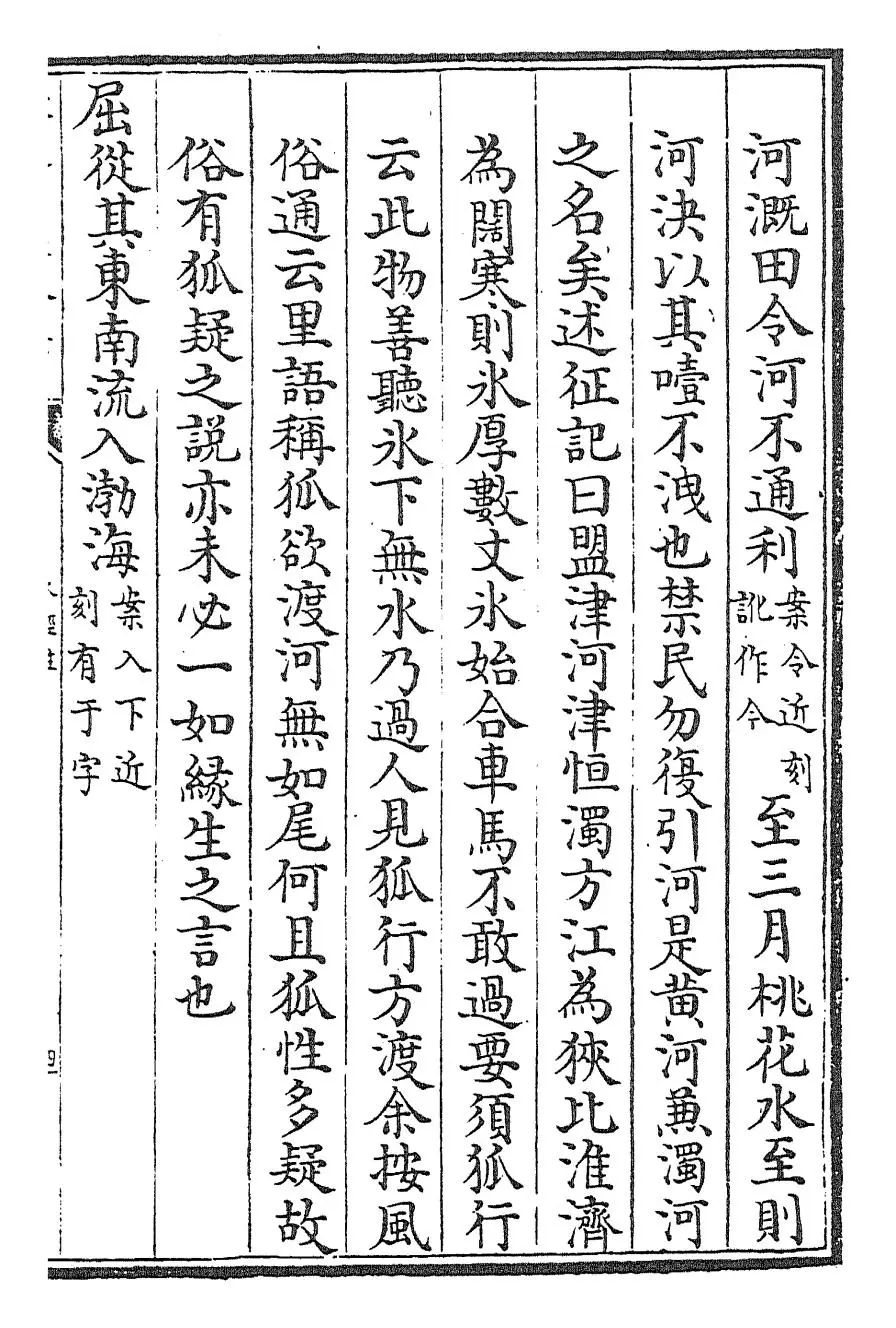 河溉田令河不通利案令近刻訛作今至三月桃花水至則
河決以其噎不洩也禁民勿復引河是黄河兼濁河
之名矣述征記曰盟津河津恒濁方江為狹比淮濟
為闊寒則氷厚數丈氷始合車馬不敢過要須狐行
云此物善聽氷下無水乃過人見狐行方渡余按風
俗通云里語稱狐欲渡河無如尾何且狐性多疑故
俗有狐疑之説亦未必一如緣生之言也
屈從其東南流入渤海案入下近刻有于字